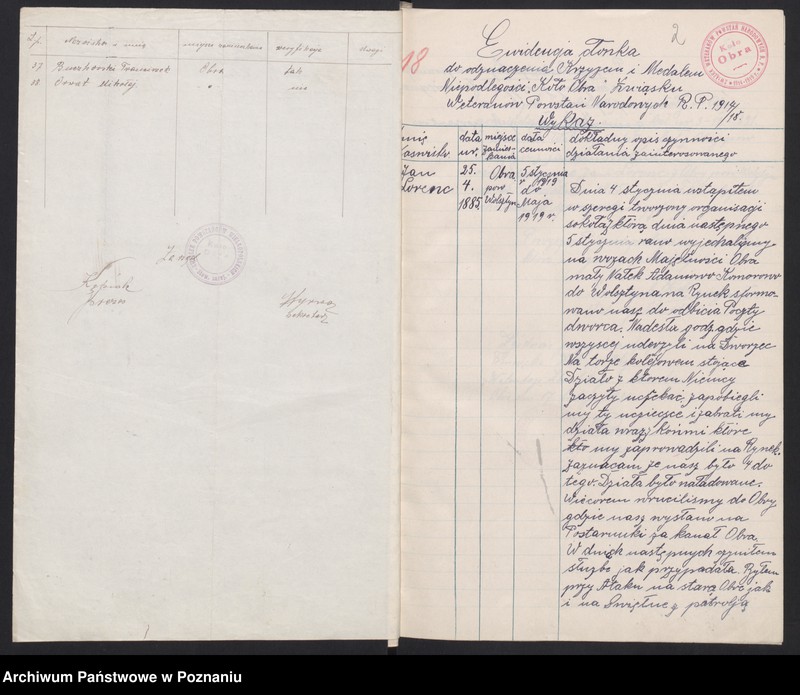 L.p. Nazwisko i imię miejsce zamieszkania weryfikacja uwagi
27 Obra tak
28 Mikołaj " nie
Prezes
Sekretarz
2
18
Koło
Obra
Ewidencja członka
do odznaczenia Krzyżem i Medalem
Niepodległości "Koło Obra" Związku
Weteranów Powstań Narodowych R.P. 1914/18.
Wykaz.
Imię Nazwisko data ur. miejsce zamieszkania data czynności dokładny opis czynności
działania zainteresowanego
Jan Lorenc 25. 4. 1885 Obra pow Wolsztyn 5 stycznia 1919 do Maja 1919 r.
Dnia 4 stycznia wstąpiłem
w szeregi tworzonej organisacji
sokołaj którą dnia następnego
5 stycznia rano wyjechaliśmy
na wozach Majętności Obra
mały Nałek Adamowo Komorowo
do Wolsztyna na Rynek sformo-
wano nasz do odbicia Poczty
dworca. Nadeszła godz gdzie
wszyscej uderzeli na Dworzec
Na torze kolejowem stojące
Działo z ktorem Niemcy
zaczyły uciekać, zapobiegli
my tej ucieczce i zabrali my
działa wraz z końmi które
my zaprowadzili na Rynek.
Zaznaczam że nasz było 4 do
tego. Działa było naładowane.
Wieczorem wrucilismy do Obry
gdzie nasz wysłano na
Postarunki za kanał Obra.
W dniach następnych czyniłem
służbę jak przypadała. Byłem
przy Ataku na starą Obrę jak
i na Świętne z patrolją
Archiwum Państwowe w Poznaniu